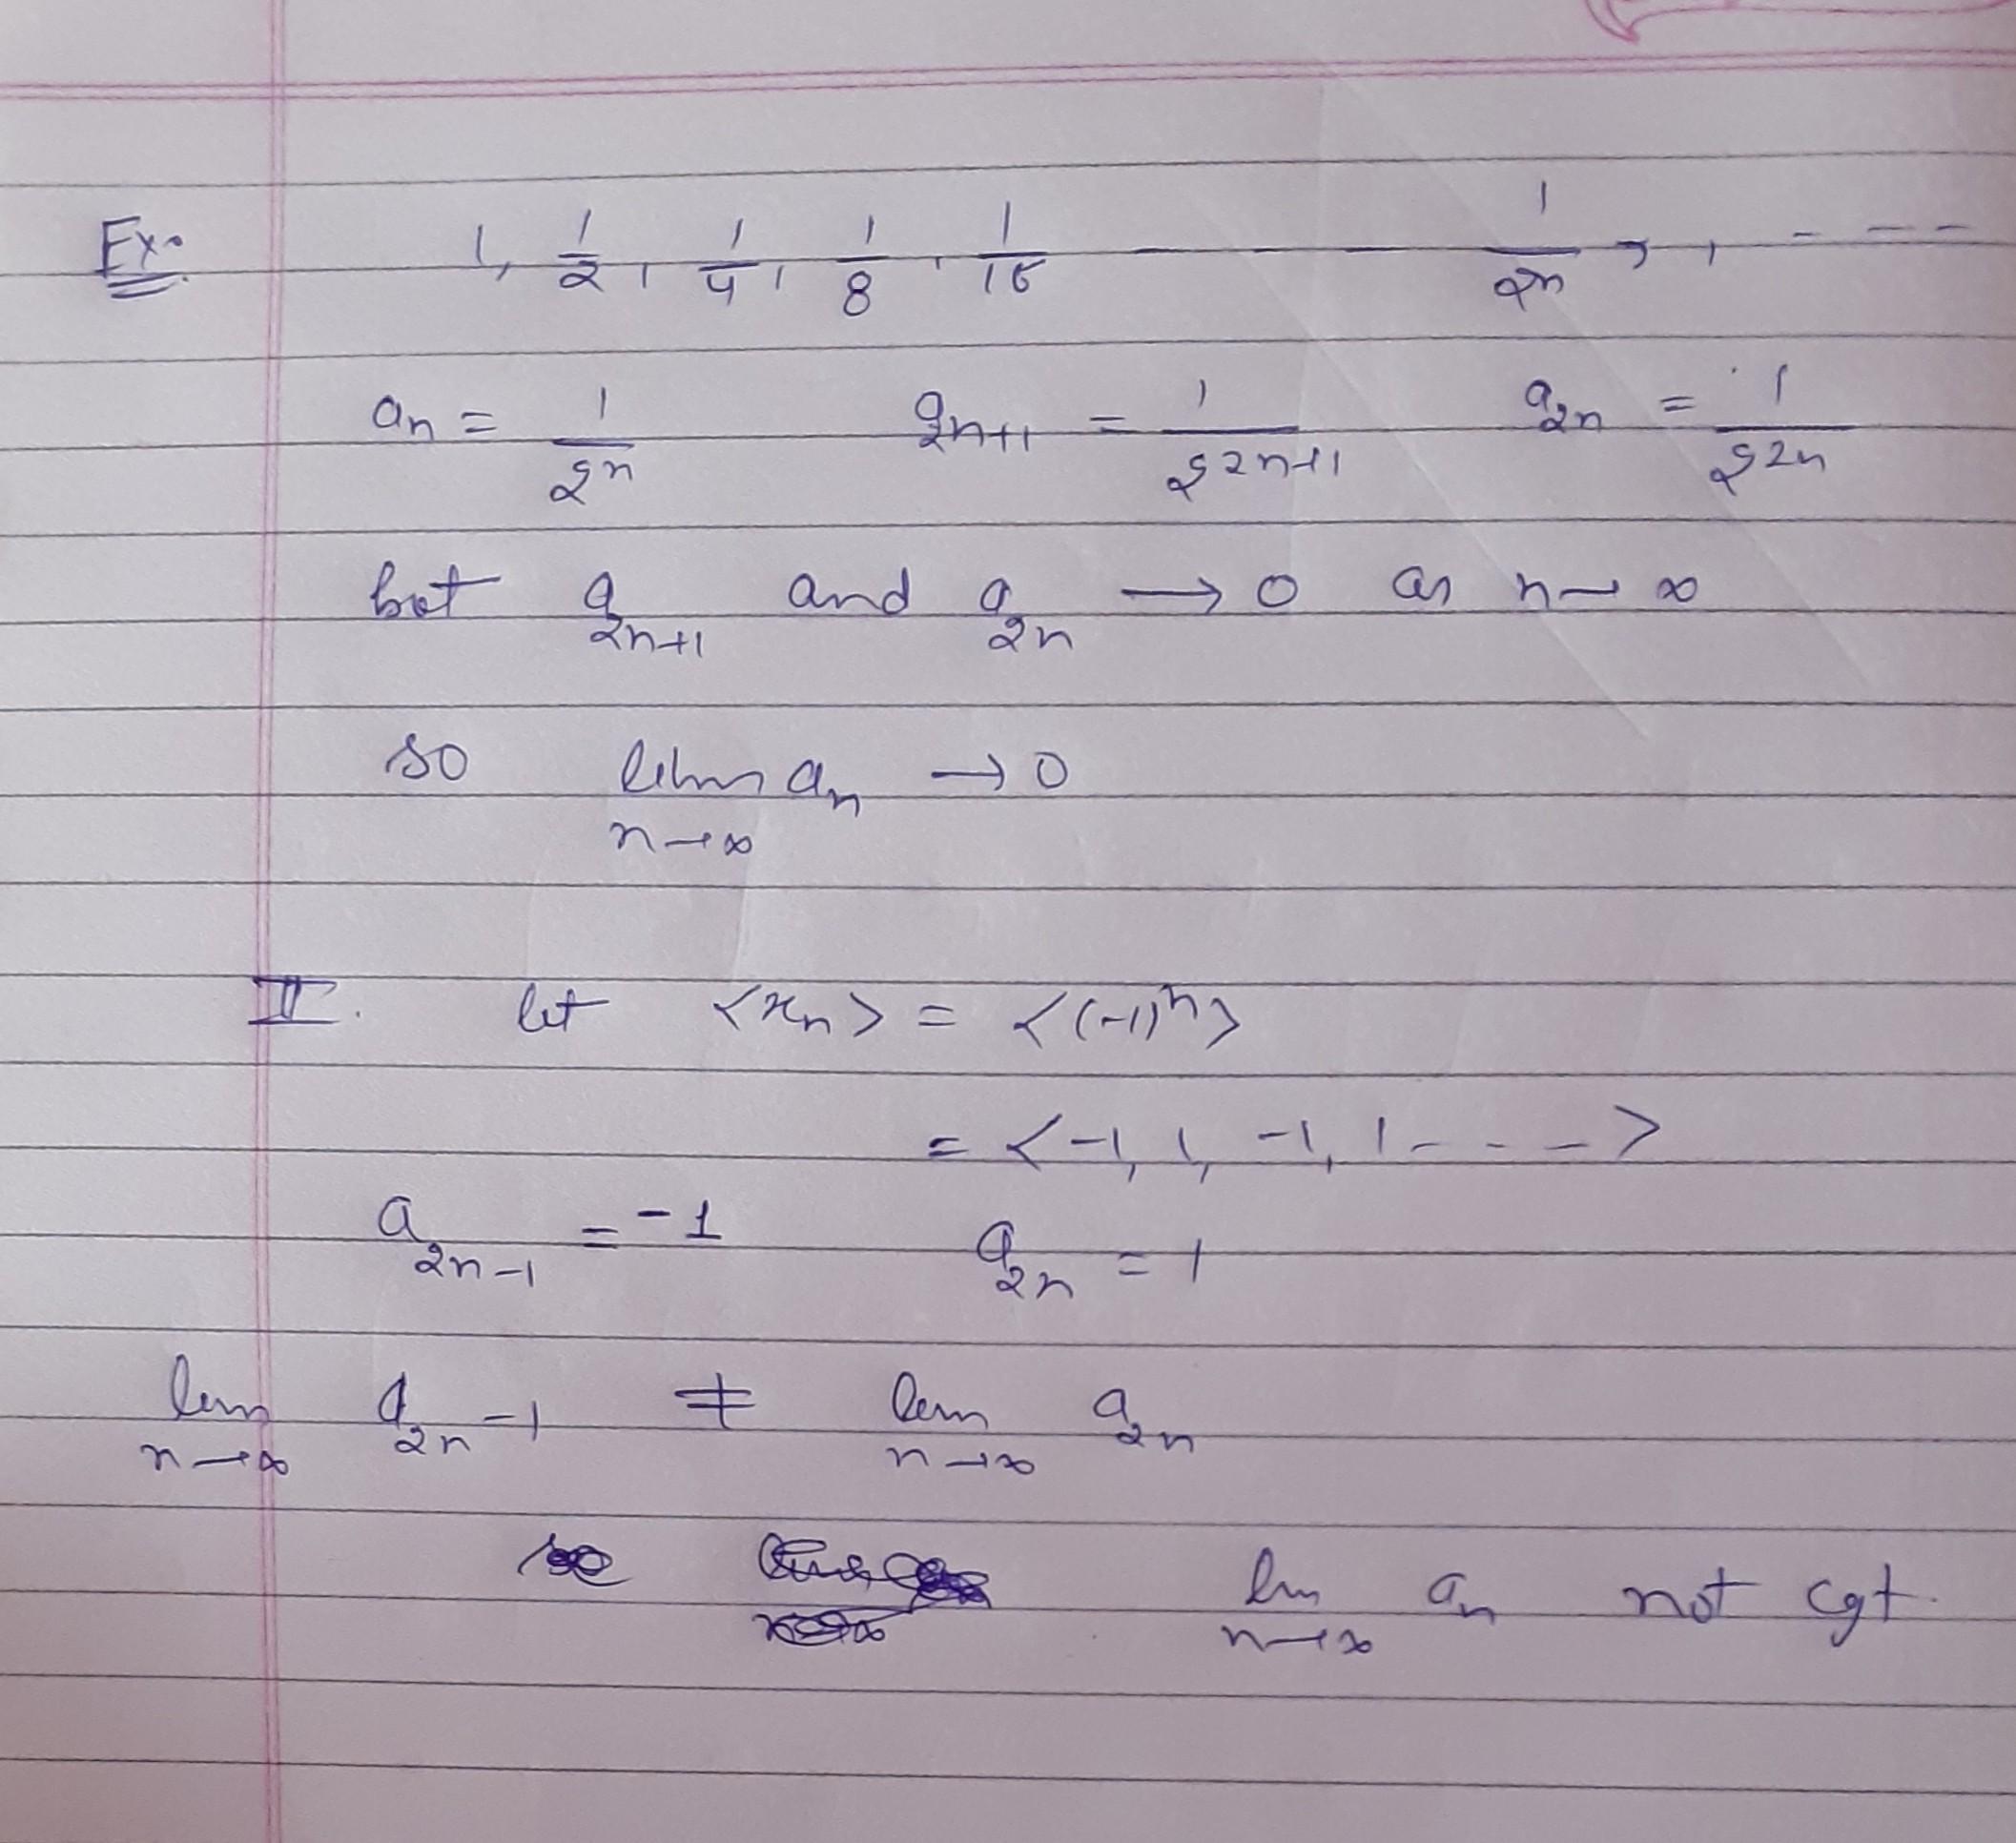 Ex. 1, 1/2, 1/4, 1/8, 1/16 — — 1/2^n, , - - - -
a_n = 1/2^n a_{2n+1} = 1/2^{2n+1} a_{2n} = 1/2^{2n}
bot a_{2n+1} and a_{2n} → 0 as n → ∞
so lim a_n → 0
n → ∞
II. let <x_n> = <(-1)^n>
= <-1, 1, -1, 1 - - - ->
a_{2n-1} = -1 a_{2n} = 1
lim a_{2n} -1 ≠ lim a_{2n}
n → ∞ n → ∞
so lim a_n not cgt.
n → ∞